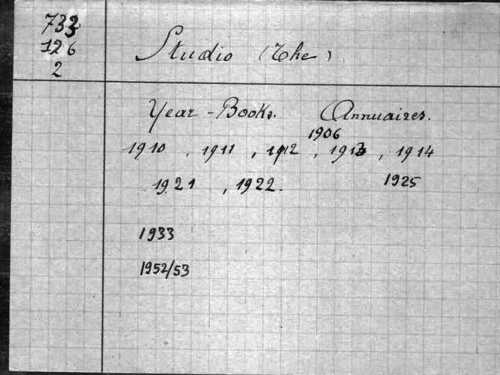 733
126
2
Studio (The)
Year-Books. Annuaires.
1906
1910, 1911, 1912, 1913, 1914
1921, 1922. 1925
1933
1952/53